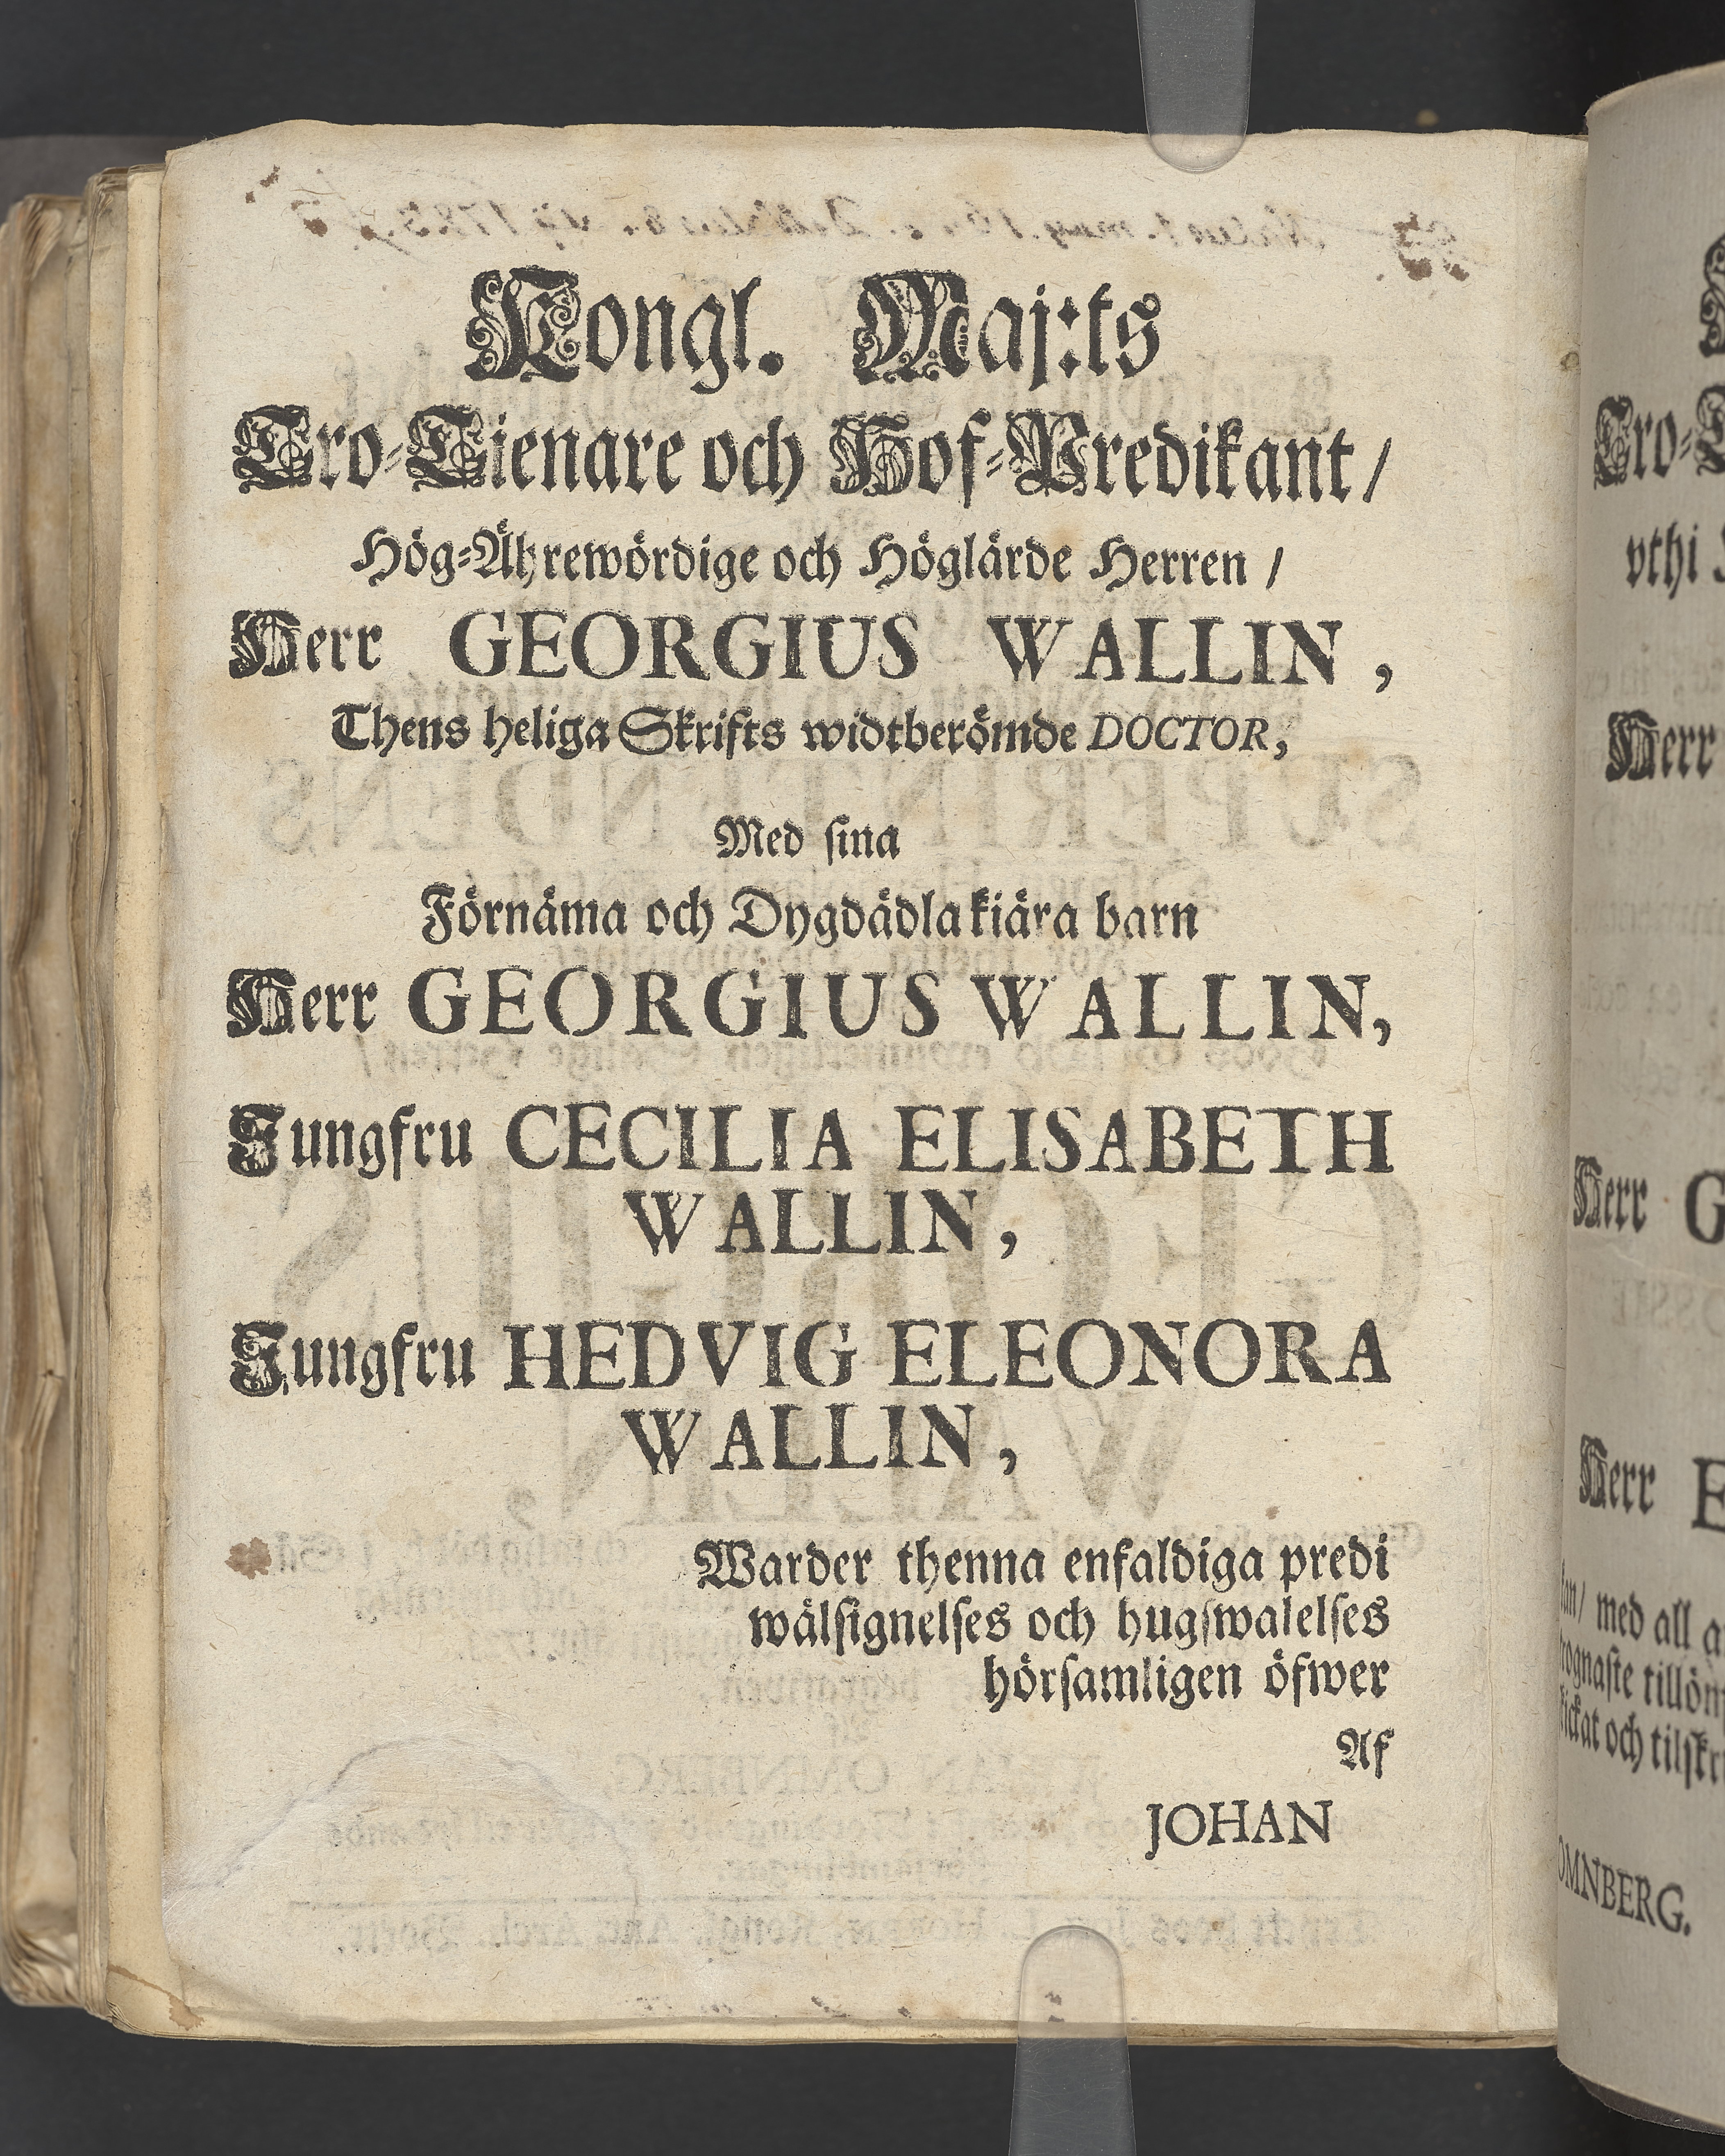 Kongl. Maj:ts
Tro-Tienare och Hof-Predikant/
Hög-Ährewördige och Höglärde Herren/
Herr GEORGIUS WALLIN,
Thens heliga Skrifts widtberömde DOCTOR,
Med sina
Förnäma och Dygdädla kiära barn
Herr GEORGIUS WALLIN,
Jungfru CECILIA ELISABETH
WALLIN,
Jungfru HEDVIG ELEONORA
WALLIN,
Warder thenna enfaldiga predi
wälsignelses och hugswalelses
hörsamligen öfwer
Af
JOHAN
Tro-
vthi
Herr
Herr G
Herr E
med all
tillöm
och tilskri
OMNBERG.